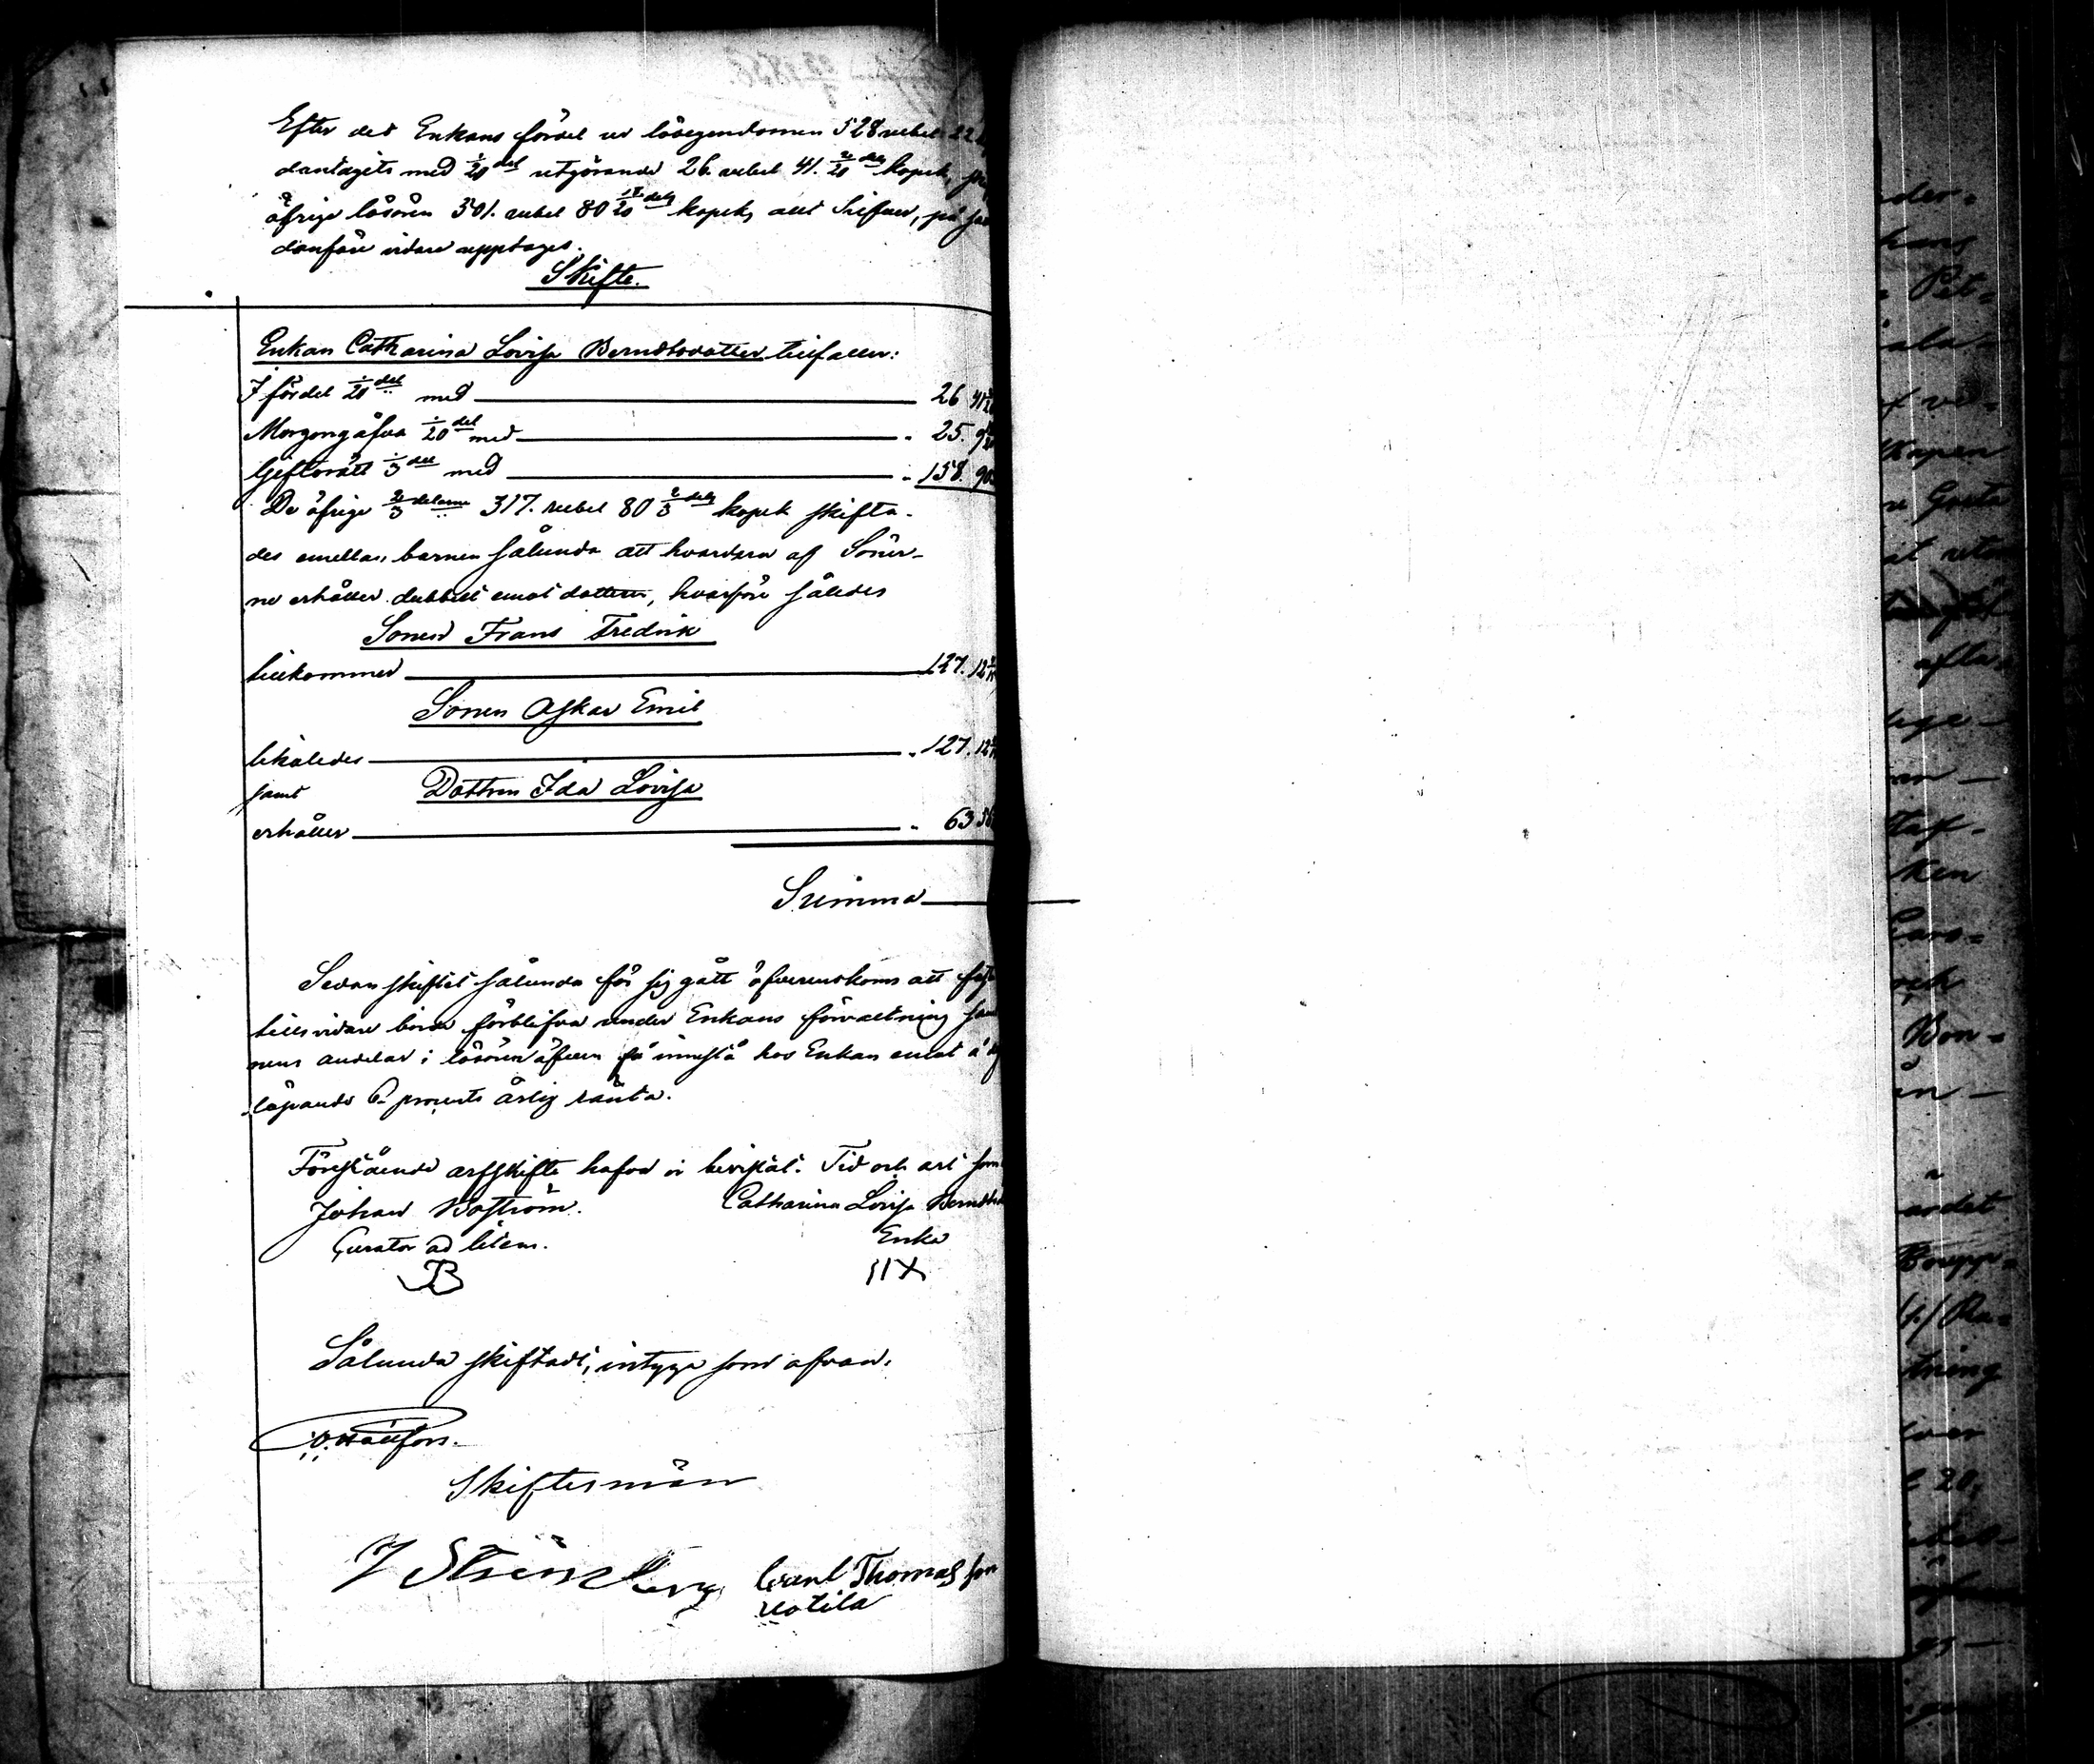 Efter det Enkans fördel ur lösegendomen 528 rubel 22
dantagits med 1/20 del utgörande 26. rubel 41. 2/20 dels kopek,
öfrige lösören 501. rubel 80 18/20 dels kopek, allt Silfver, på
danföre vidare upptages.
Skifte.
Enkan Catharina Lovisa Berndtsdotter tillfaller:
I fördel 1/20 del med 26 41
Morgongåfva 1/20 del med 25. 9
Giftorätt 1/3 del med 158. 90
De öfrige 2/3 delarne 317. rubel 80 2/3 dels kopek skifta-
des emellan barnen sålunda att hvardera af Söner-
ne erhåller dubbelt emot dottern, hvarföre således
Sonen Frans Fredrik
tillkommer 127. 12
Sonen Oskar Emil
likaledes 127. 12
samt Dottren Ida Lovisa
erhåller 63
Summa
Sedan skiftet sålunda för sig gått öfverenskoms att
tillsvidare borde förblifva under Enkans förvaltning
nens andelar i lösören äfven få innestå hos Enkan emot
löpande 6 procents årlig ränta.
Förestående arfskifte hafva vi bevistat. Tid och ort som
Johan Boström. Catharina Lovisa Berndts
Curator ad litem. Enka
B IIX
Sålunda skiftadt, intyga som ofvan.
Skiftesmän
J Strömberg Thomasson